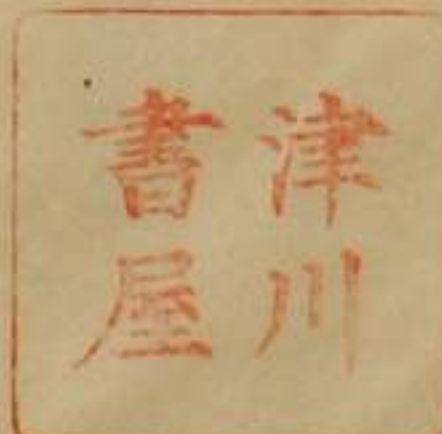 津川
書屋